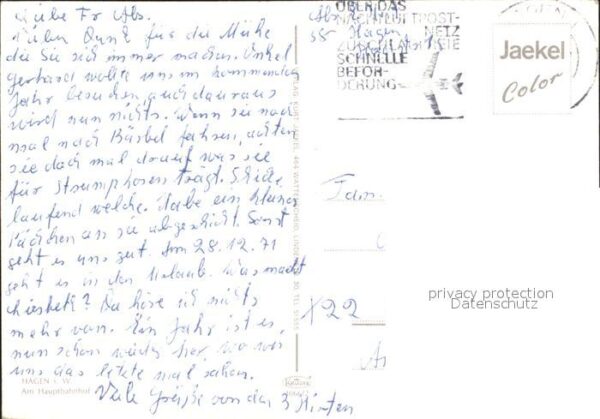 Liebe Fr Abs.
Lieben Dank für die Mühe
die Sie sich immer machen. Onkel
Gerhard wollte uns im kommenden
Jahr besuchen, auch daraus
wird nun nichts. Wenn sie noch
mal nach Bärbel fahren, achten
sie doch mal drauf was sie
für Strumphosen trägt. Schicke
laufend welche. Habe ein kleines
Päckchen an sie abgeschickt. Sonst
geht es uns gut. Am 28.12.71
geht es in den Urlaub. Was macht
Da höre ich nichts
mehr von. Ein Jahr ist es
nun schon wieder her, wo wir
uns das letzte mal sahen.
Viele Grüße von den 3
HAGEN i. W.
Am Hauptbahnhof
58 Hagen
ÜBER DAS
NACHTLUFTPOST-
NETZ
SCHNELLE
BEFÖR-
DERUNG
Jaekel
Color
Fam.
X22
privacy protection
Datenschutz